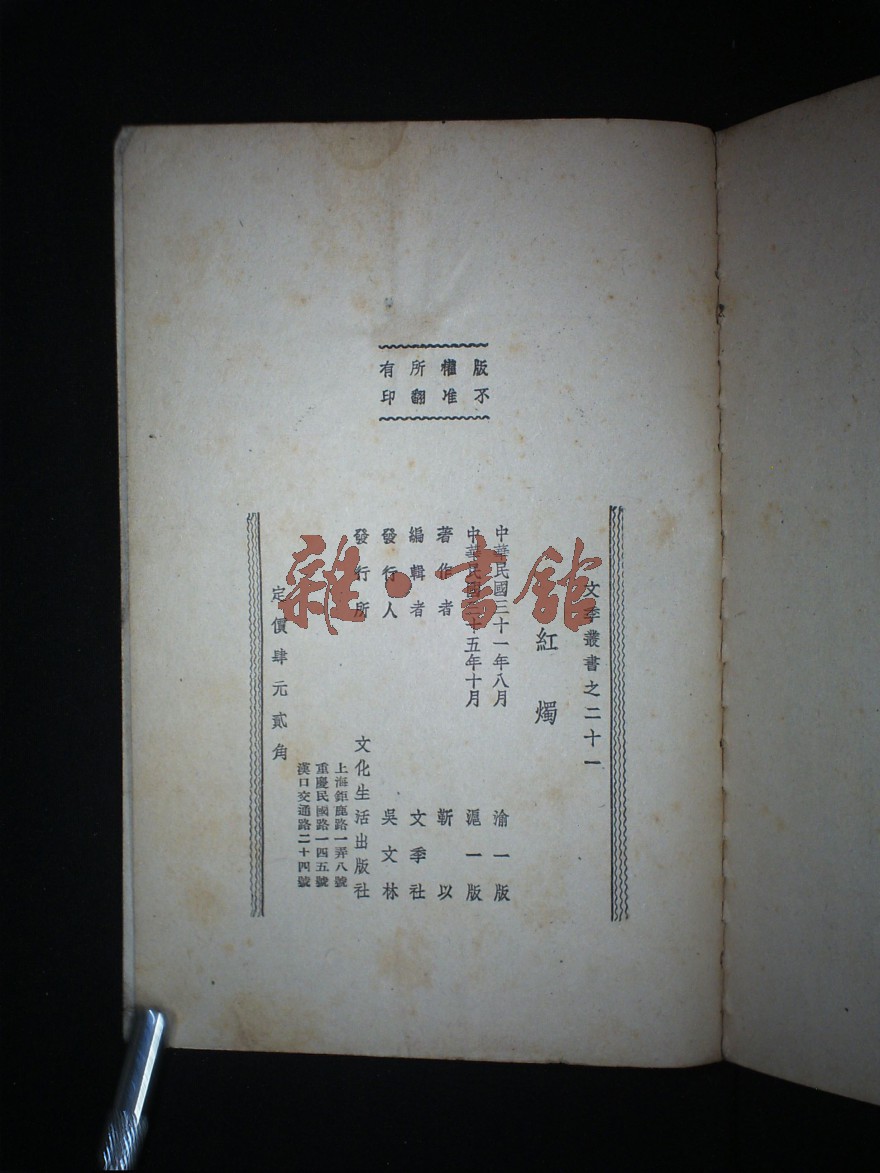 版權所有
不准翻印
文季叢書之二十一
紅燭
中華民國三十一年八月 渝一版
中華民國三十五年十月 滬一版
著作者 靳以
編輯者 文季社
發行人 吳文林
發行所 文化生活出版社
上海鉅鹿路一弄八號
重慶民國路一四五號
漢口交通路二十四號
定價肆元貳角
雜·書館